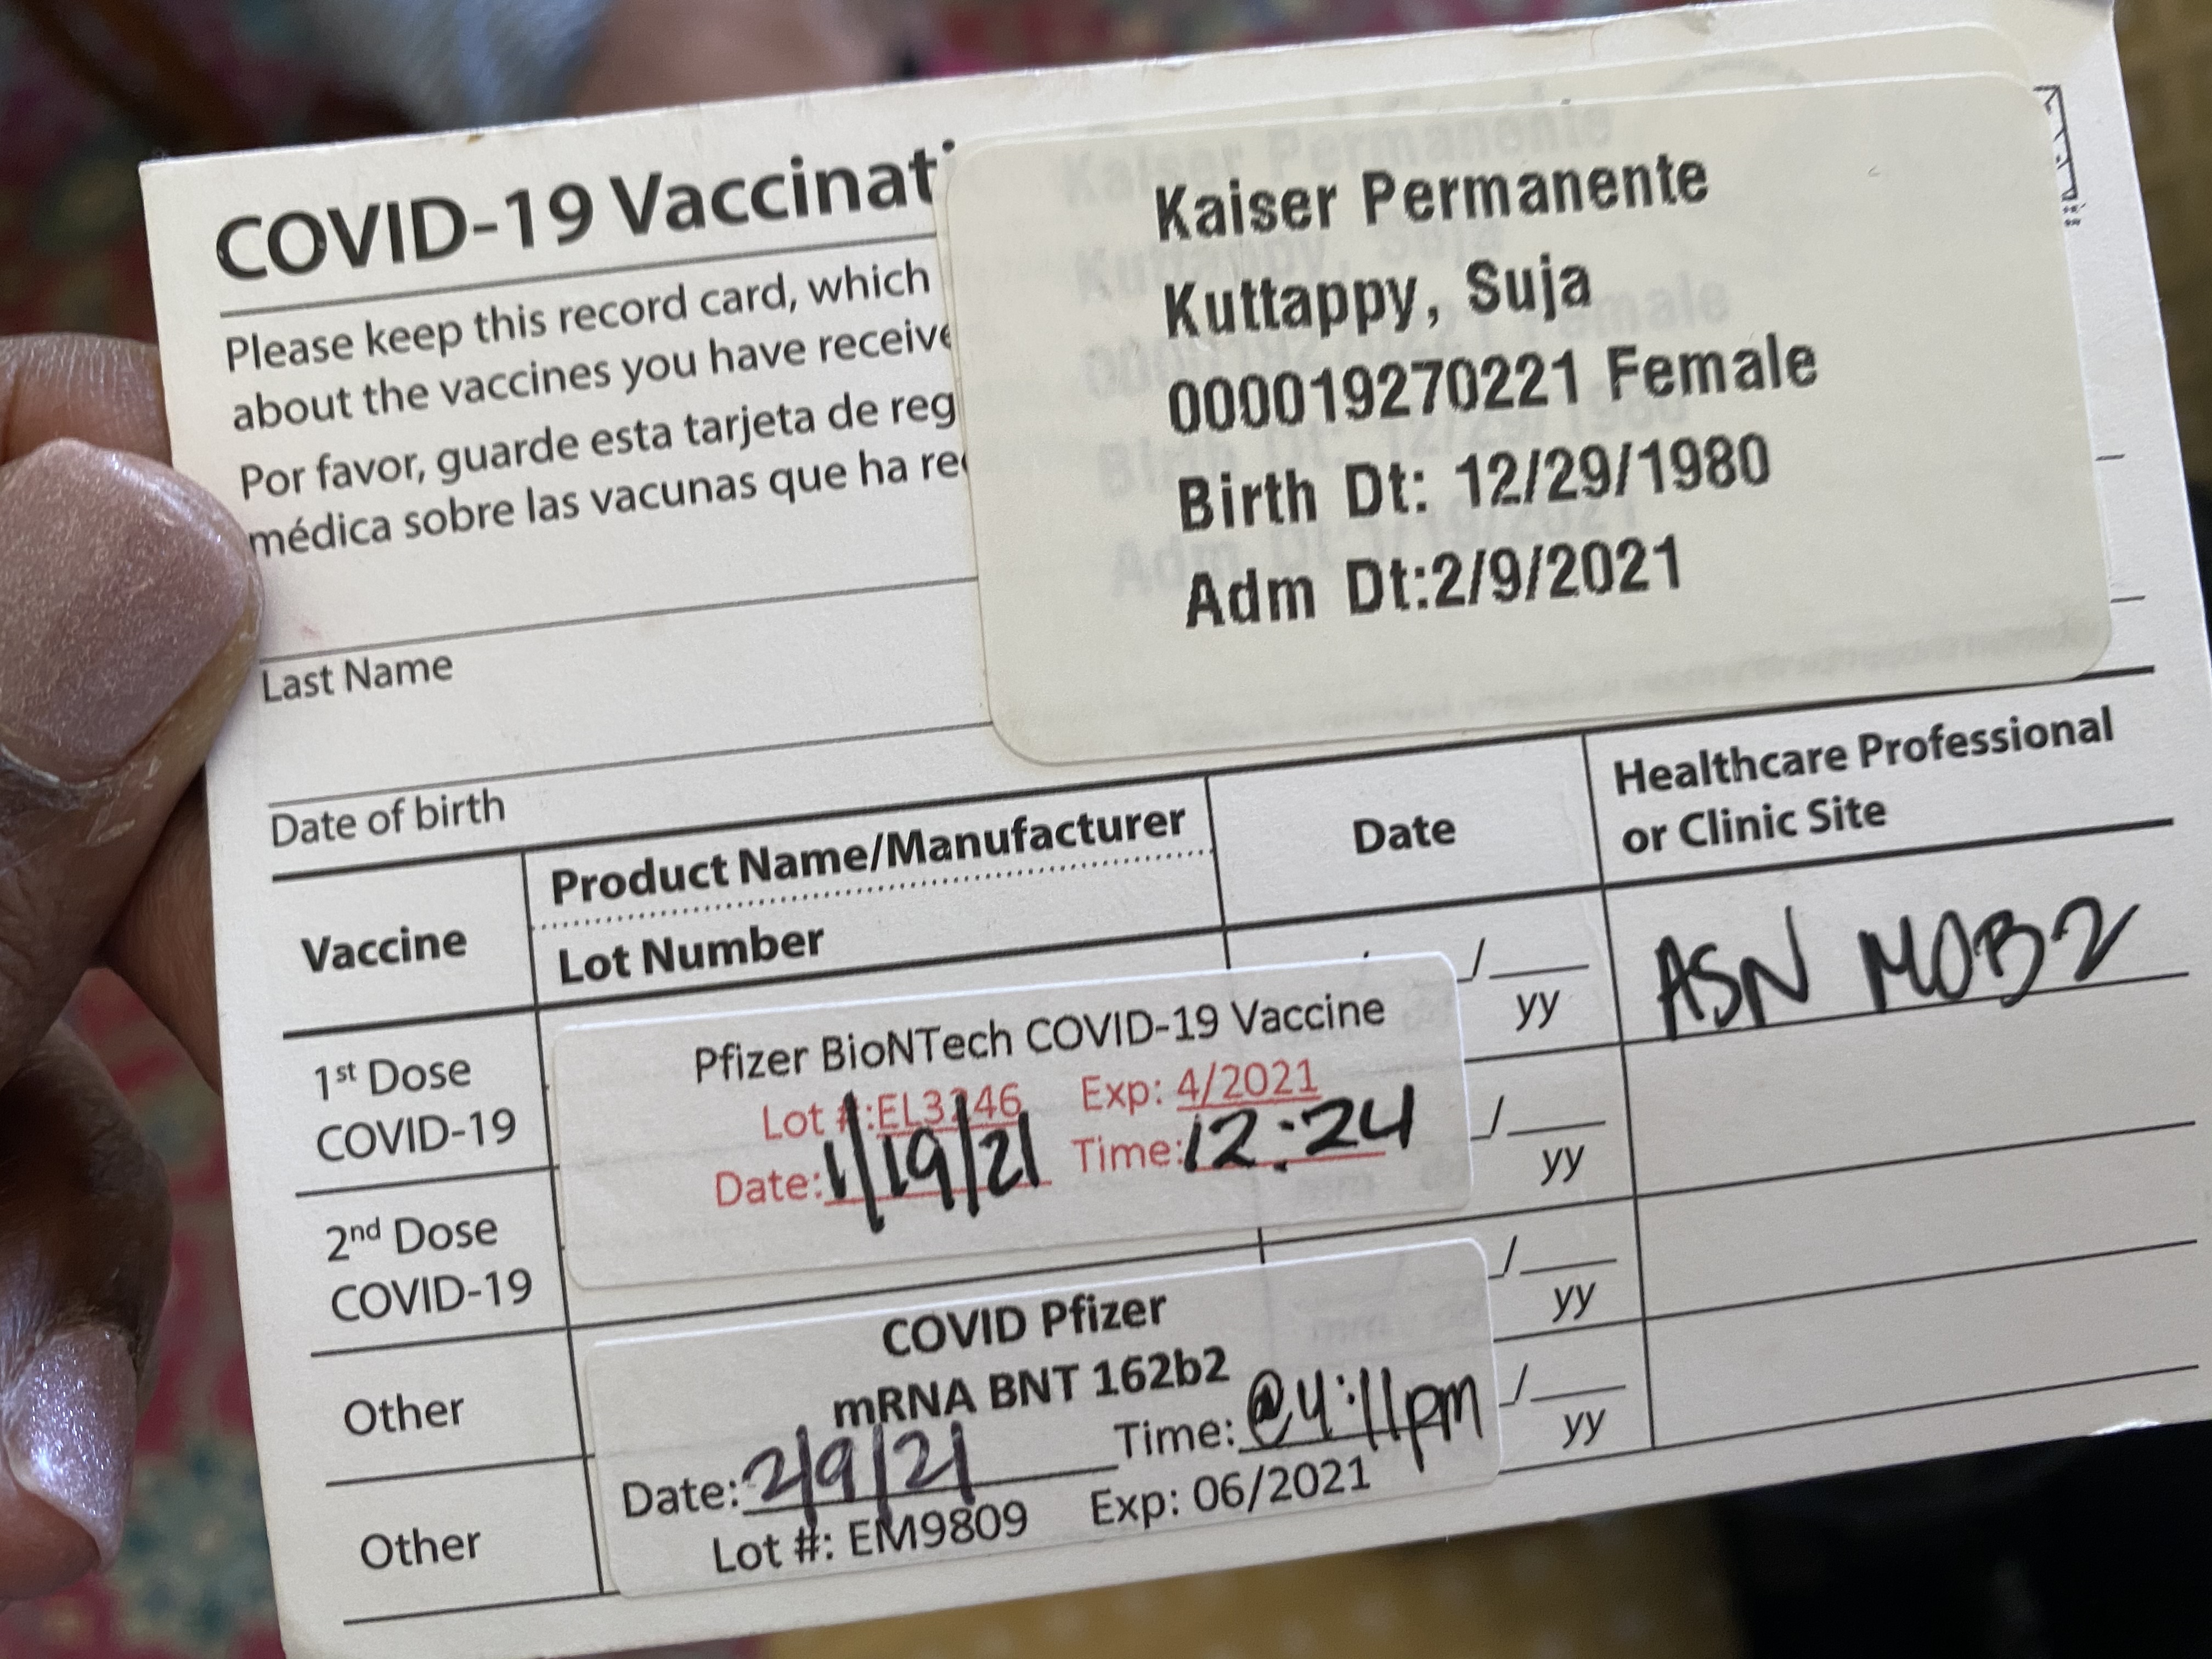 COVID-19 Vaccinati
Please keep this record card, which
about the vaccines you have receive
Por favor, guarde esta tarjeta de reg
médica sobre las vacunas que ha re
Kaiser Permanente
Kuttappy, Suja
000019270221 Female
Birth Dt: 12/29/1980
Adm Dt:2/9/2021
Last Name
Date of birth
Vaccine
Product Name/Manufacturer
Lot Number
Date
Healthcare Professional
or Clinic Site
1st Dose
COVID-19
Pfizer BioNTech COVID-19 Vaccine
Lot #:EL3246 Exp: 4/2021
Date: 1/19/21 Time: 12:24
/ yy
ASN MOB2
2nd Dose
COVID-19
/ yy
Other
COVID Pfizer
mRNA BNT 162b2
Date: 2/9/21 Time: @4:11pm
Lot #: EM9809 Exp: 06/2021
/ yy
Other
/ yy